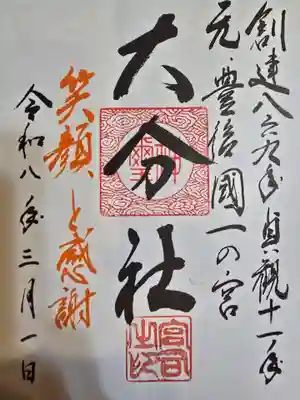 創建八六九年貞観十一年
元・豊後國一の宮
大分社
笑顔と感謝
令和八年三月一日